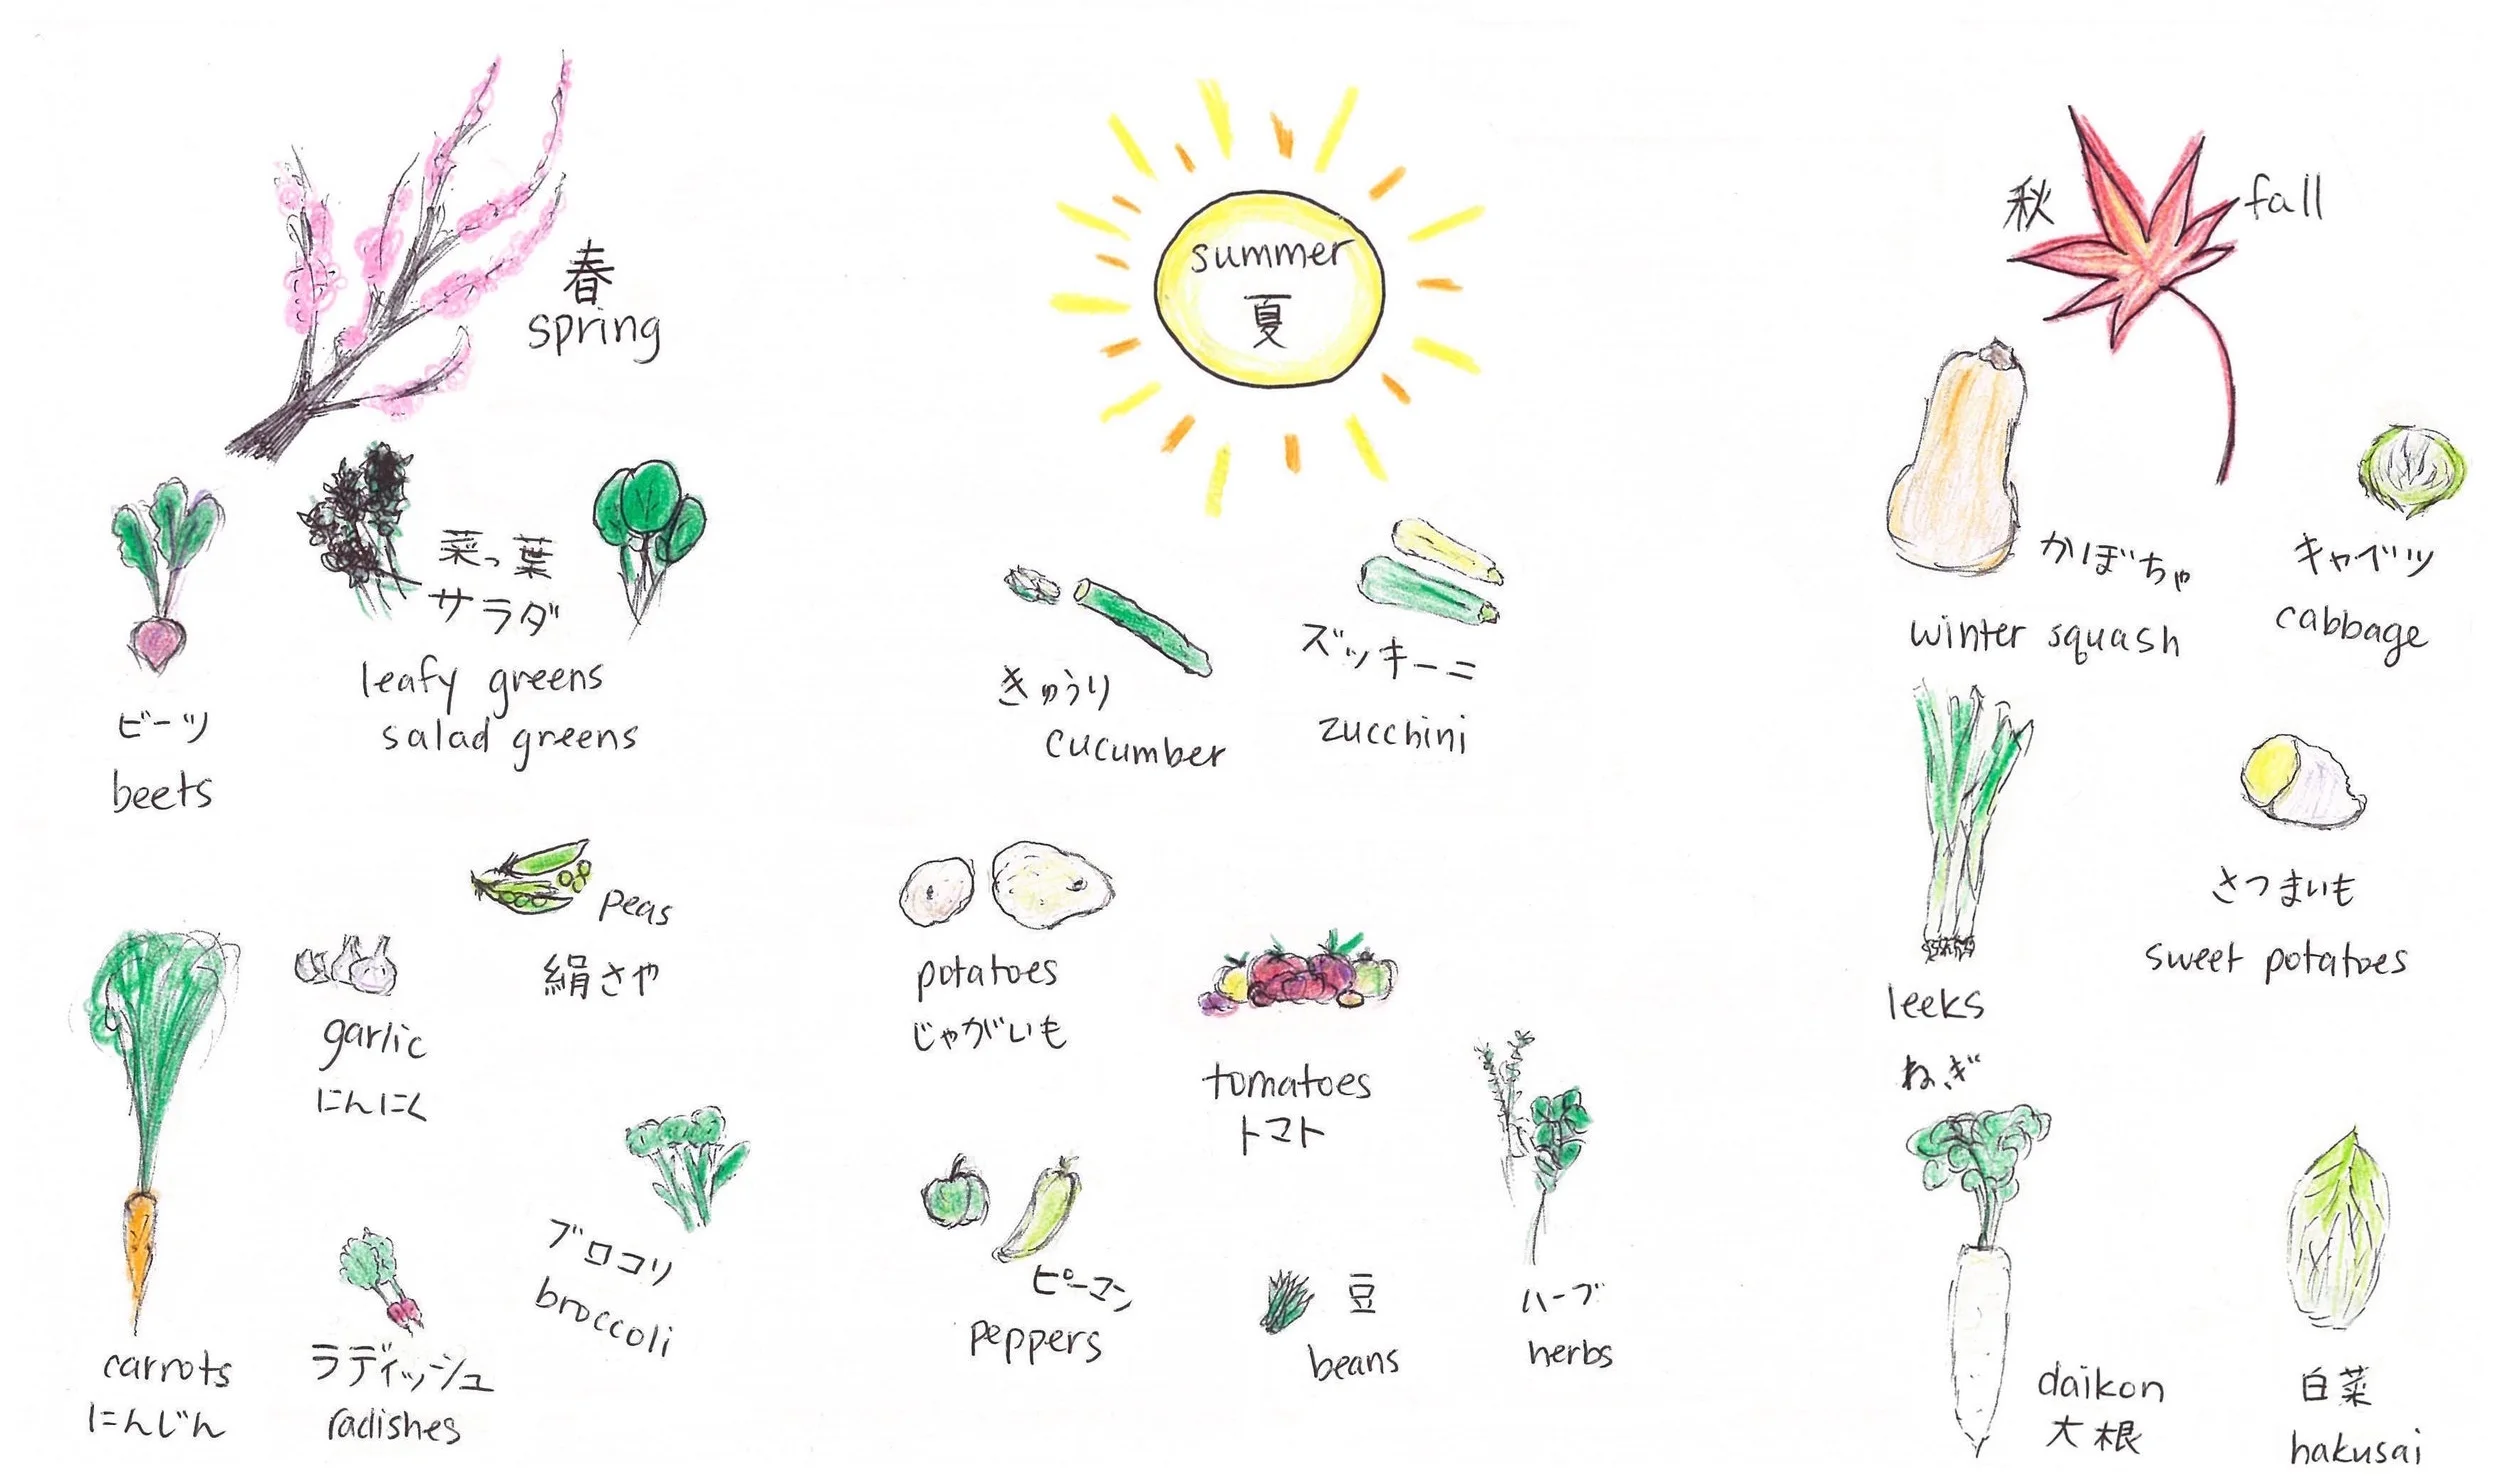 春
spring
菜っ葉
サラダ
leafy greens
salad greens
ビーツ
beets
peas
絹さや
garlic
にんにく
ブロコリ
broccoli
carrots
にんじん
ラディッシュ
radishes
summer
夏
きゅうり
cucumber
ズッキーニ
zucchini
potatoes
じゃがいも
tomatoes
トマト
ピーマン
peppers
豆
beans
ハーブ
herbs
秋
fall
かぼちゃ
winter squash
キャベツ
cabbage
leeks
ねぎ
さつまいも
sweet potatoes
daikon
大根
白菜
hakusai